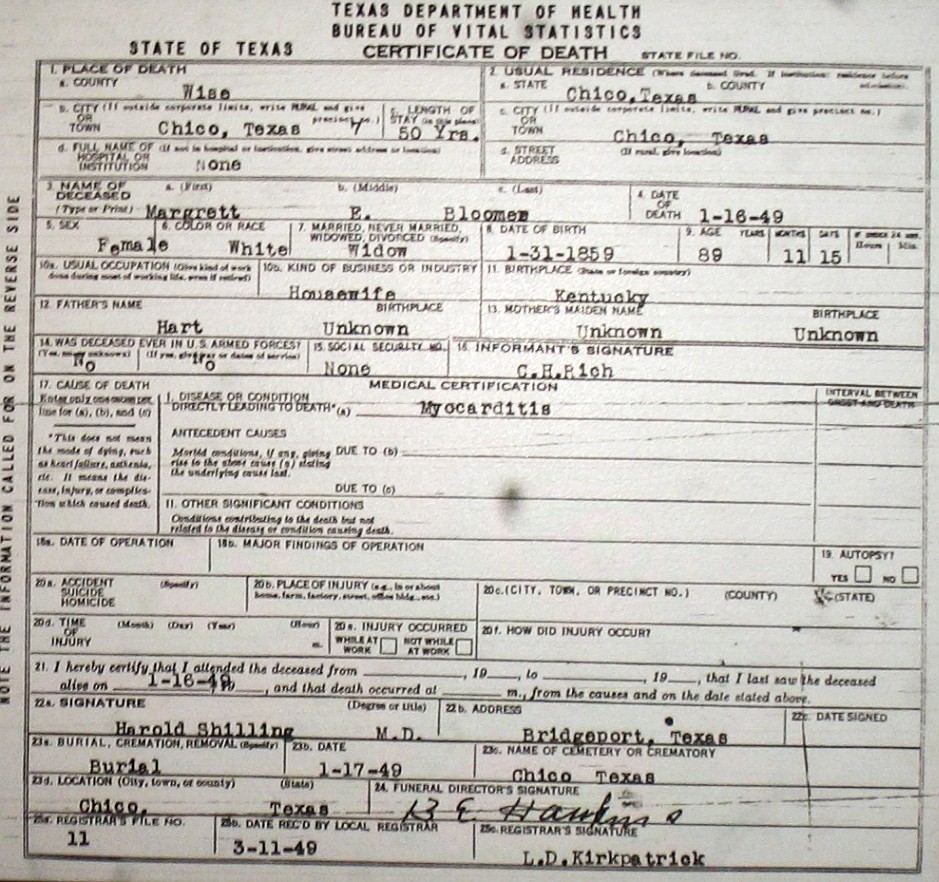 TEXAS DEPARTMENT OF HEALTH
BUREAU OF VITAL STATISTICS
STATE OF TEXAS CERTIFICATE OF DEATH STATE FILE NO.
1. PLACE OF DEATH 2. USUAL RESIDENCE (Where deceased lived. If institution: residence before admission.)
a. COUNTY Wise a. STATE Chico, Texas b. COUNTY
b. CITY (If outside corporate limits, write RURAL and give precinct no.) 7 c. LENGTH OF STAY (in this place) c. CITY (If outside corporate limits, write RURAL and give precinct no.)
OR TOWN Chico, Texas 50 Yrs. OR TOWN Chico, Texas
d. FULL NAME OF (If not in hospital or institution, give street address or location) d. STREET ADDRESS (If rural, give location)
HOSPITAL OR INSTITUTION None
3. NAME OF DECEASED a. (First) b. (Middle) c. (Last) 4. DATE OF DEATH 1-16-49
(Type or Print) Margrett E. Bloomer
5. SEX 6. COLOR OR RACE 7. MARRIED, NEVER MARRIED, WIDOWED, DIVORCED (Specify) 8. DATE OF BIRTH 9. AGE YEARS MONTHS DAYS IF UNDER 24 HRS. Hours Min.
Female White Widow 1-31-1859 89 11 15
10a. USUAL OCCUPATION (Give kind of work done during most of working life, even if retired) 10b. KIND OF BUSINESS OR INDUSTRY 11. BIRTHPLACE (State or foreign country)
Housewife Kentucky
12. FATHER'S NAME BIRTHPLACE 13. MOTHER'S MAIDEN NAME BIRTHPLACE
Hart Unknown Unknown Unknown
14. WAS DECEASED EVER IN U.S. ARMED FORCES? 15. SOCIAL SECURITY NO. 16. INFORMANT'S SIGNATURE
(Yes, no, or unknown) (If yes, give war or dates of service)
No No None C.H.Rich
17. CAUSE OF DEATH MEDICAL CERTIFICATION INTERVAL BETWEEN ONSET AND DEATH
Enter only one cause per line for (a), (b), and (c)
I. DISEASE OR CONDITION DIRECTLY LEADING TO DEATH* (a) Myocarditis
*This does not mean the mode of dying, such as heart failure, asthenia, etc. It means the disease, injury, or complication which caused death.
ANTECEDENT CAUSES
Morbid conditions, if any, giving rise to the above cause (a) stating the underlying cause last. DUE TO (b)
DUE TO (c)
11. OTHER SIGNIFICANT CONDITIONS
Conditions contributing to the death but not related to the disease or condition causing death.
18a. DATE OF OPERATION 18b. MAJOR FINDINGS OF OPERATION 19. AUTOPSY?
YES NO
20a. ACCIDENT SUICIDE HOMICIDE (Specify) 20b. PLACE OF INJURY (e.g., in or about home, farm, factory, street, office bldg., etc.) 20c. (CITY, TOWN, OR PRECINCT NO.) (COUNTY) (STATE)
20d. TIME OF INJURY (Month) (Day) (Year) (Hour) m. 20e. INJURY OCCURRED WHILE AT WORK NOT WHILE AT WORK 20f. HOW DID INJURY OCCUR?
21. I hereby certify that I attended the deceased from , 19 , to , 19 , that I last saw the deceased
alive on 1-16-49 , and that death occurred at m., from the causes and on the date stated above.
22a. SIGNATURE (Degree or title) 22b. ADDRESS 22c. DATE SIGNED
Harold Shilling M.D. Bridgeport, Texas
23a. BURIAL, CREMATION, REMOVAL (Specify) 23b. DATE 23c. NAME OF CEMETERY OR CREMATORY
Burial 1-17-49 Chico Texas
23d. LOCATION (City, town, or county) (State) 24. FUNERAL DIRECTOR'S SIGNATURE
Chico, Texas B E Hawkins
25a. REGISTRAR'S FILE NO. 25b. DATE REC'D BY LOCAL REGISTRAR 25c. REGISTRAR'S SIGNATURE
11 3-11-49 L.D.Kirkpatrick
NOTE THE INFORMATION CALLED FOR ON THE REVERSE SIDE